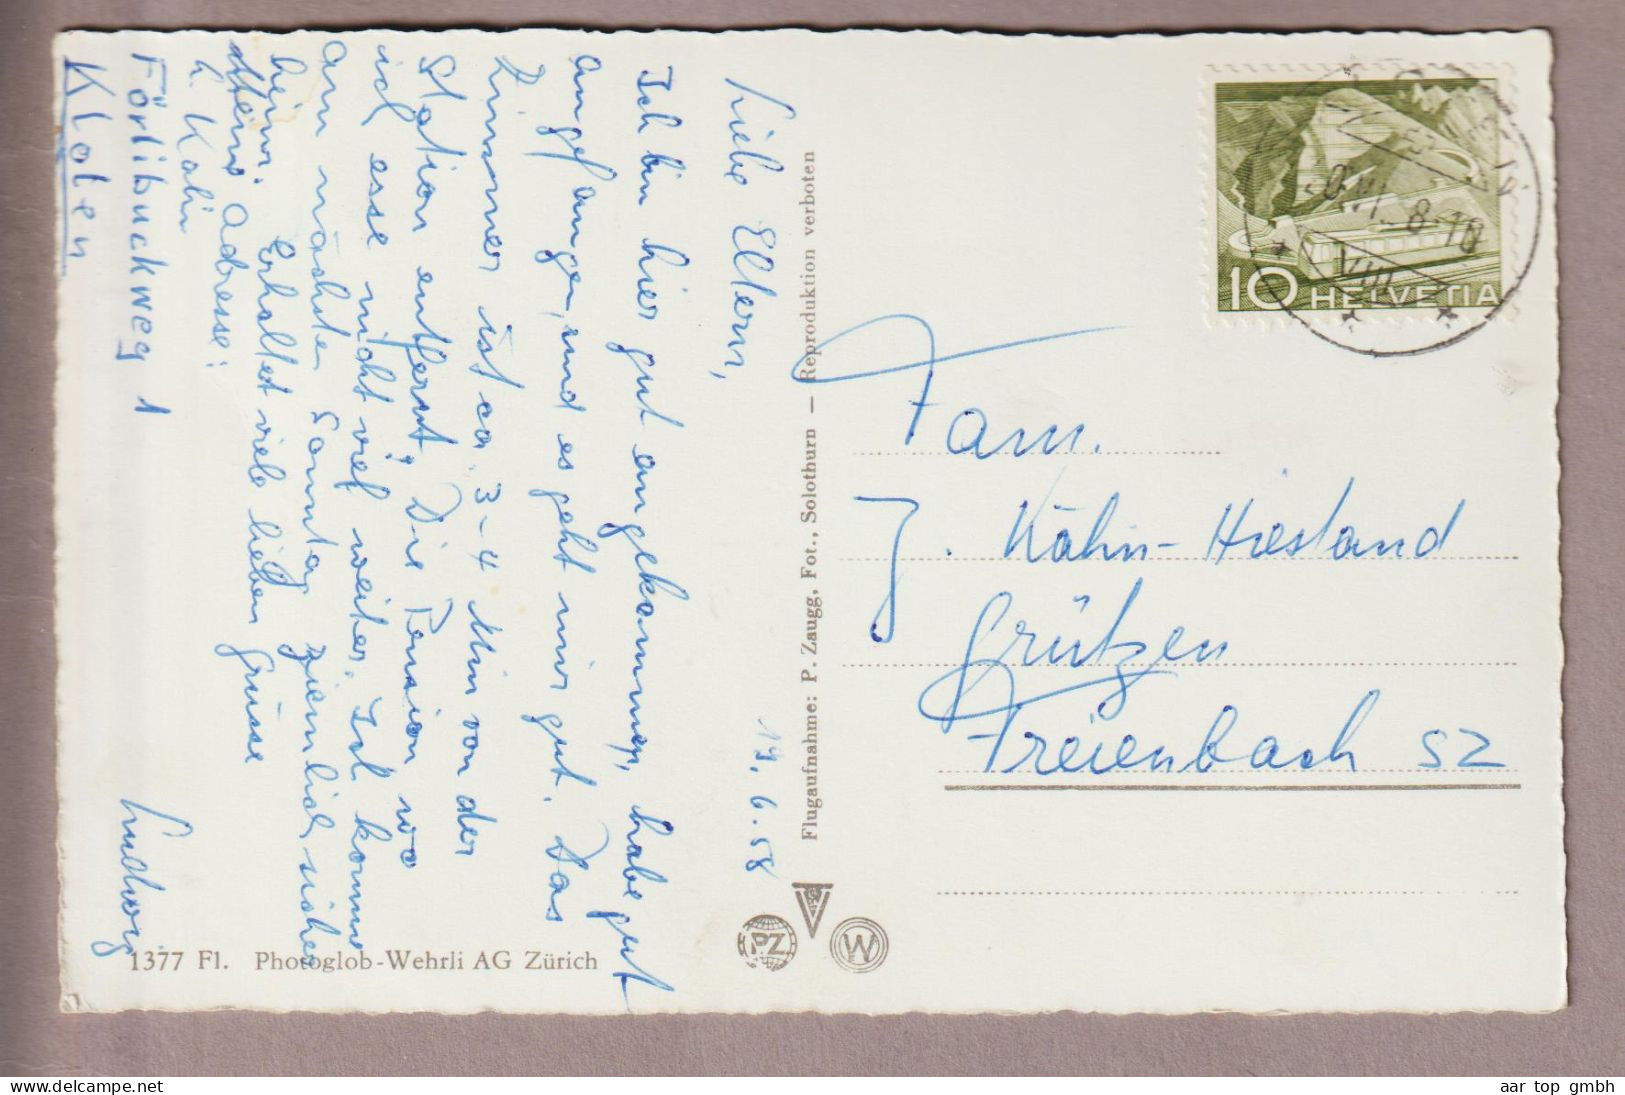 19. 6. 58
Liebe Eltern,
Ich bin hier gut angekommen, habe gut
angefangen, und es geht mir gut. Das
Zimmer ist ca. 3-4 Min von der
Station entfernt. Die Pension wo
ich esse nicht viel weiter. Ich komme
am nächsten Sonntag ziemlich sicher
heim. Erhaltet viele lieben Grüsse
Ludwig
Meine Adresse:
L. Kälin
Förlibuckweg 1
Kloten
1377 Fl. Photoglob-Wehrli AG Zürich
Flugaufnahme: P. Zaugg, Fot., Solothurn – Reproduktion verboten
PZ
W
10 HELVETIA
VIII
Fam.
J. Kälin-Hiestand
Grützen
Freienbach SZ
aar top gmbh